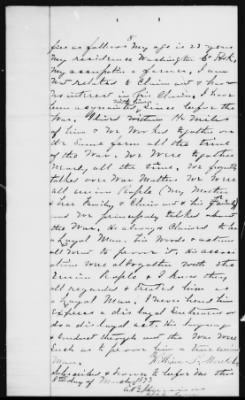 fies as follows My age is 23 years
My residence Washington Co Ark,
My occupation a farmer, I am
not related to Claimant & have
no interest in his Claim, I have
been acquainted since before the
War, lived within ½ miles
of him & We Worked together on
the same farm all the time
of the War. We Were together
nearly all the time. We frequently
talked over War Matters. We Were
all Union People (My Mother
& her Family & Claimant & his Family)
and We principally talked about
the War, He always Claimed to be
a Loyal Man, his Words & actions
all Went to prove it, his associ
ations Were altogether with the
Union People & I know they
all regarded & treated him as
a Loyal Man. I never heard him
express a disloyal sentiment or
do a disloyal act. His language
& Conduct through out the War Were
Such as to prove him a true Union
Man.
Subscribed & Sworn to before me this
day of March 1873